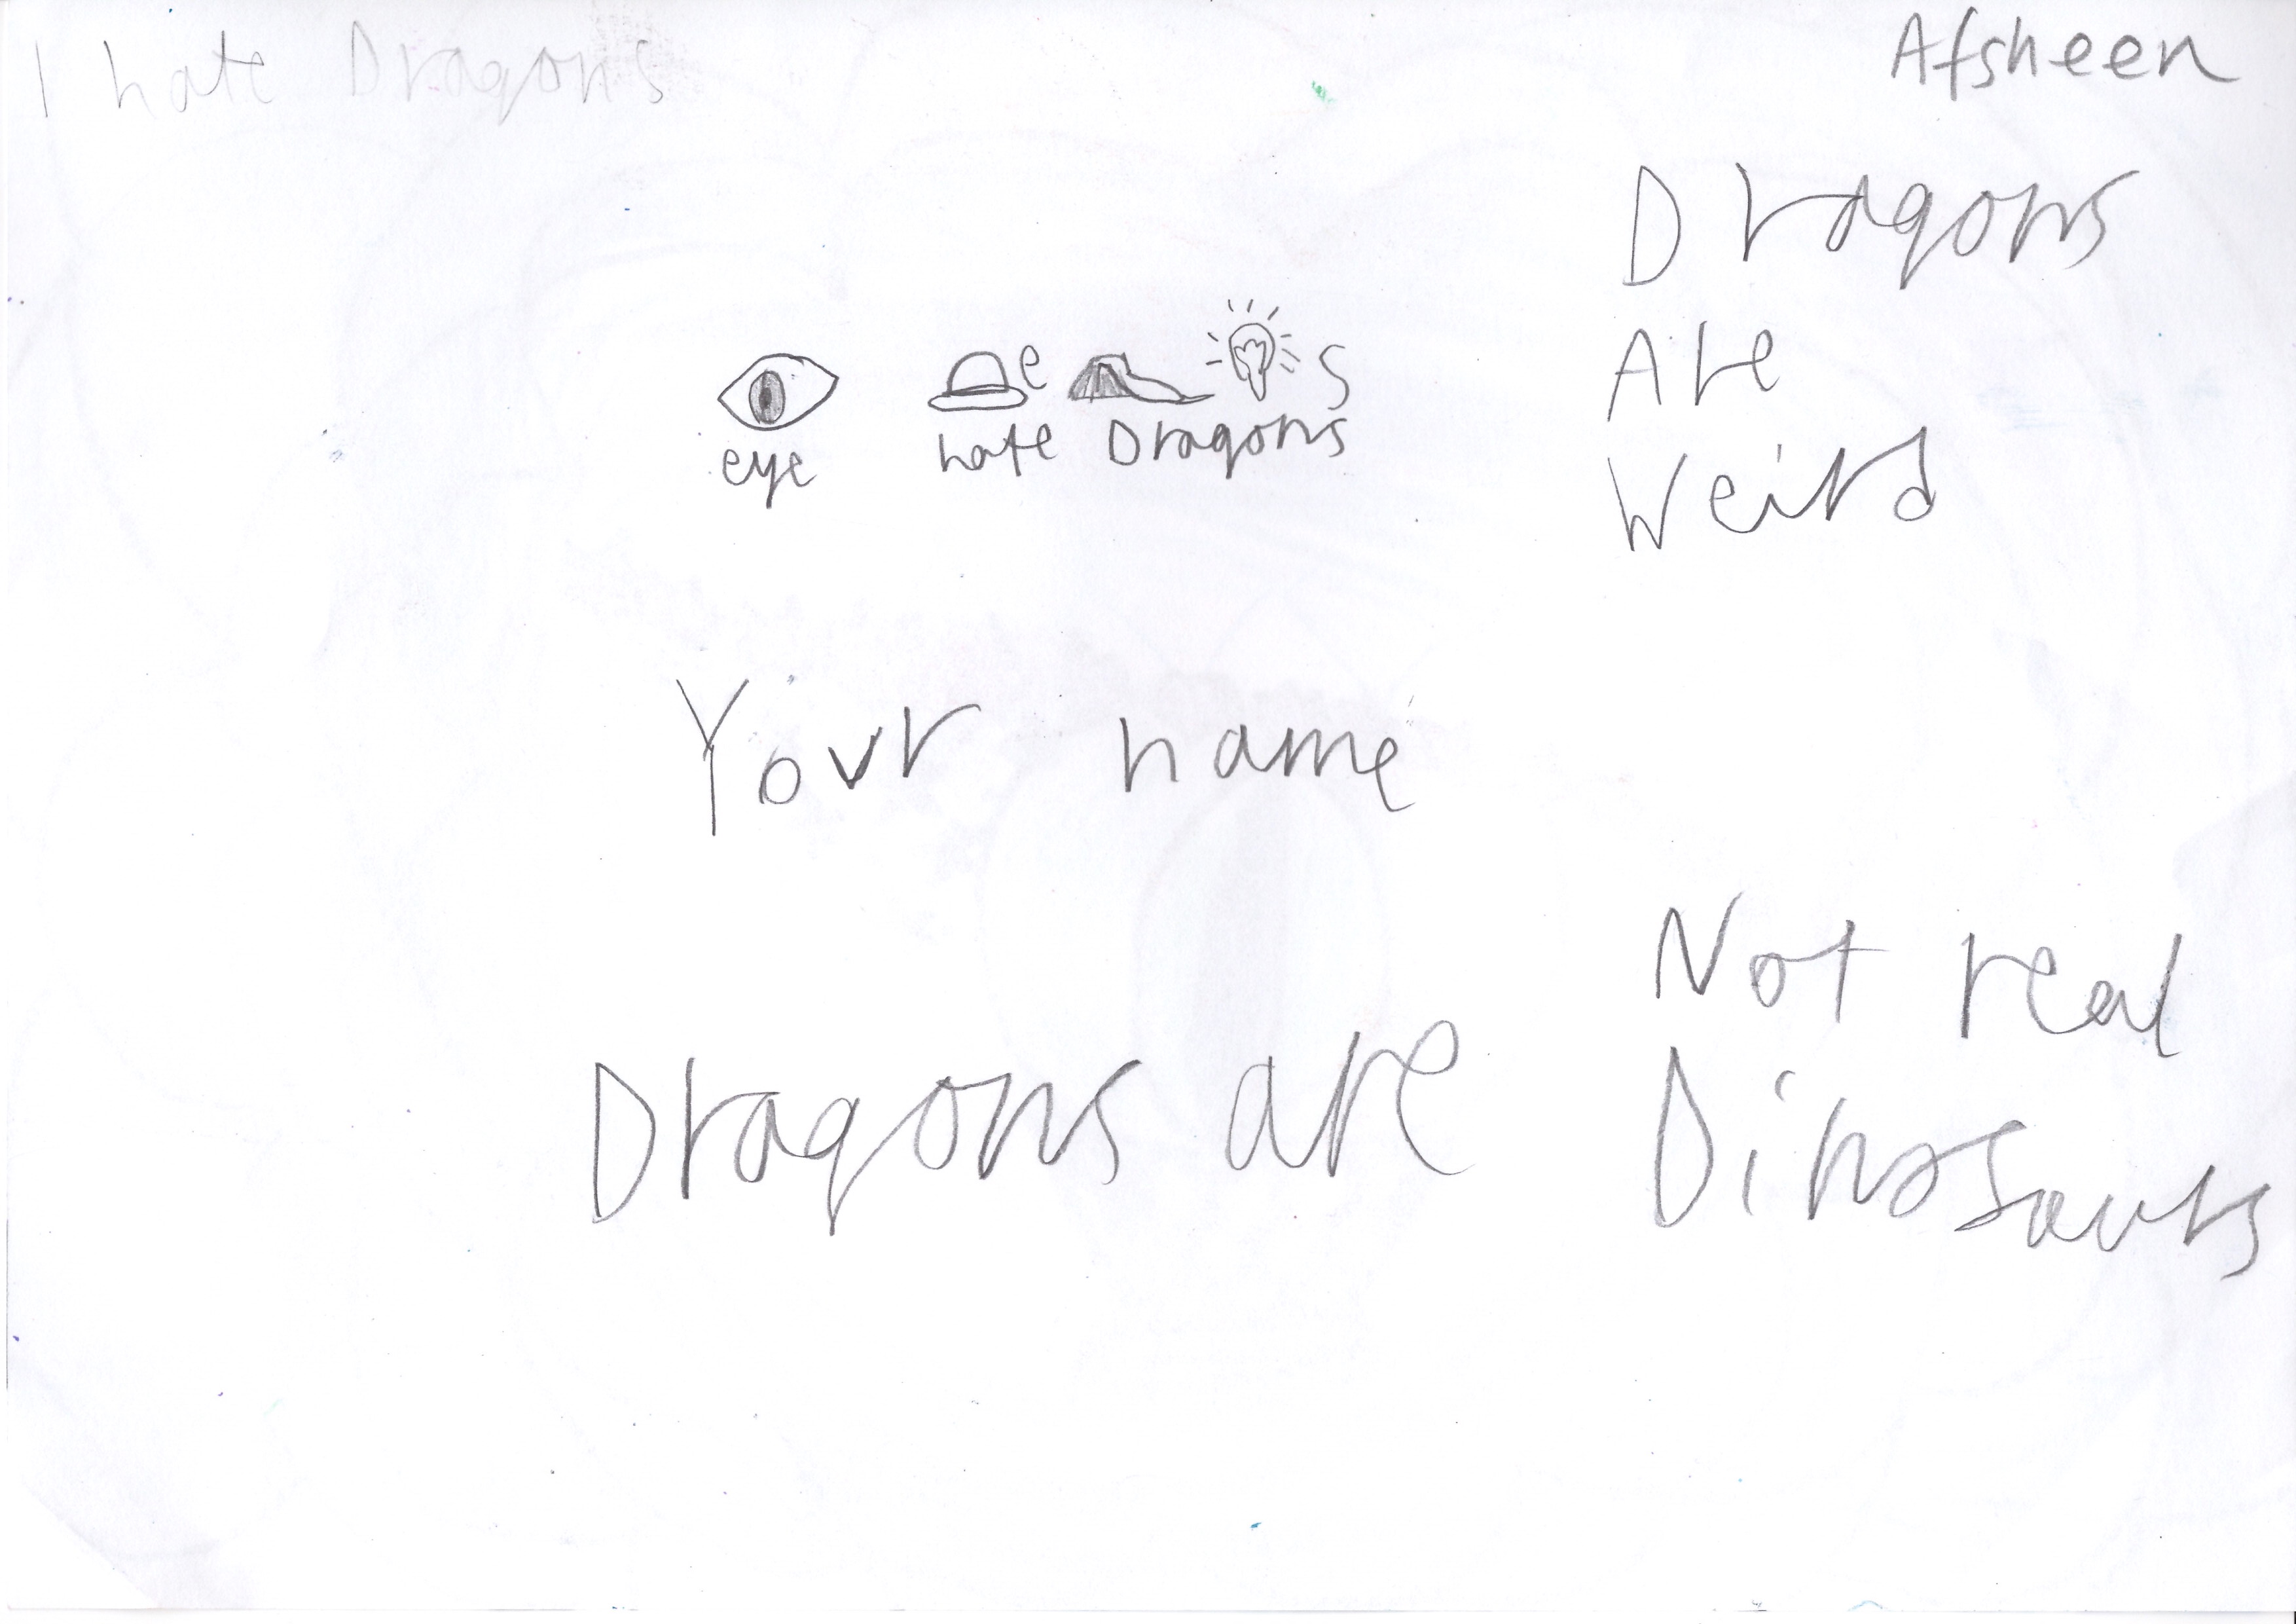 I hate Dragons
Afsheen
Dragons
Are
Weird
e s
eye hate Dragons
Your name
Not real
Dragons are Dinosaurs